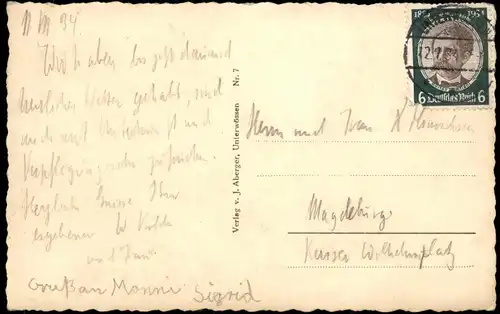 Wir haben bis jetzt dauernd
herrliches Wetter gehabt, sind
auch mit Unterkunft und
Verpflegung sehr zufrieden.
Herzliche Grüsse Ihre
ergebenen W.
und Frau
Gruß an Sigrid
Verlag v. J. Aberger, Unterwössen Nr. 7
1934
6 Deutsches Reich 6
Herrn und Frau
Magdeburg
Kaiser Wilhelmsplatz